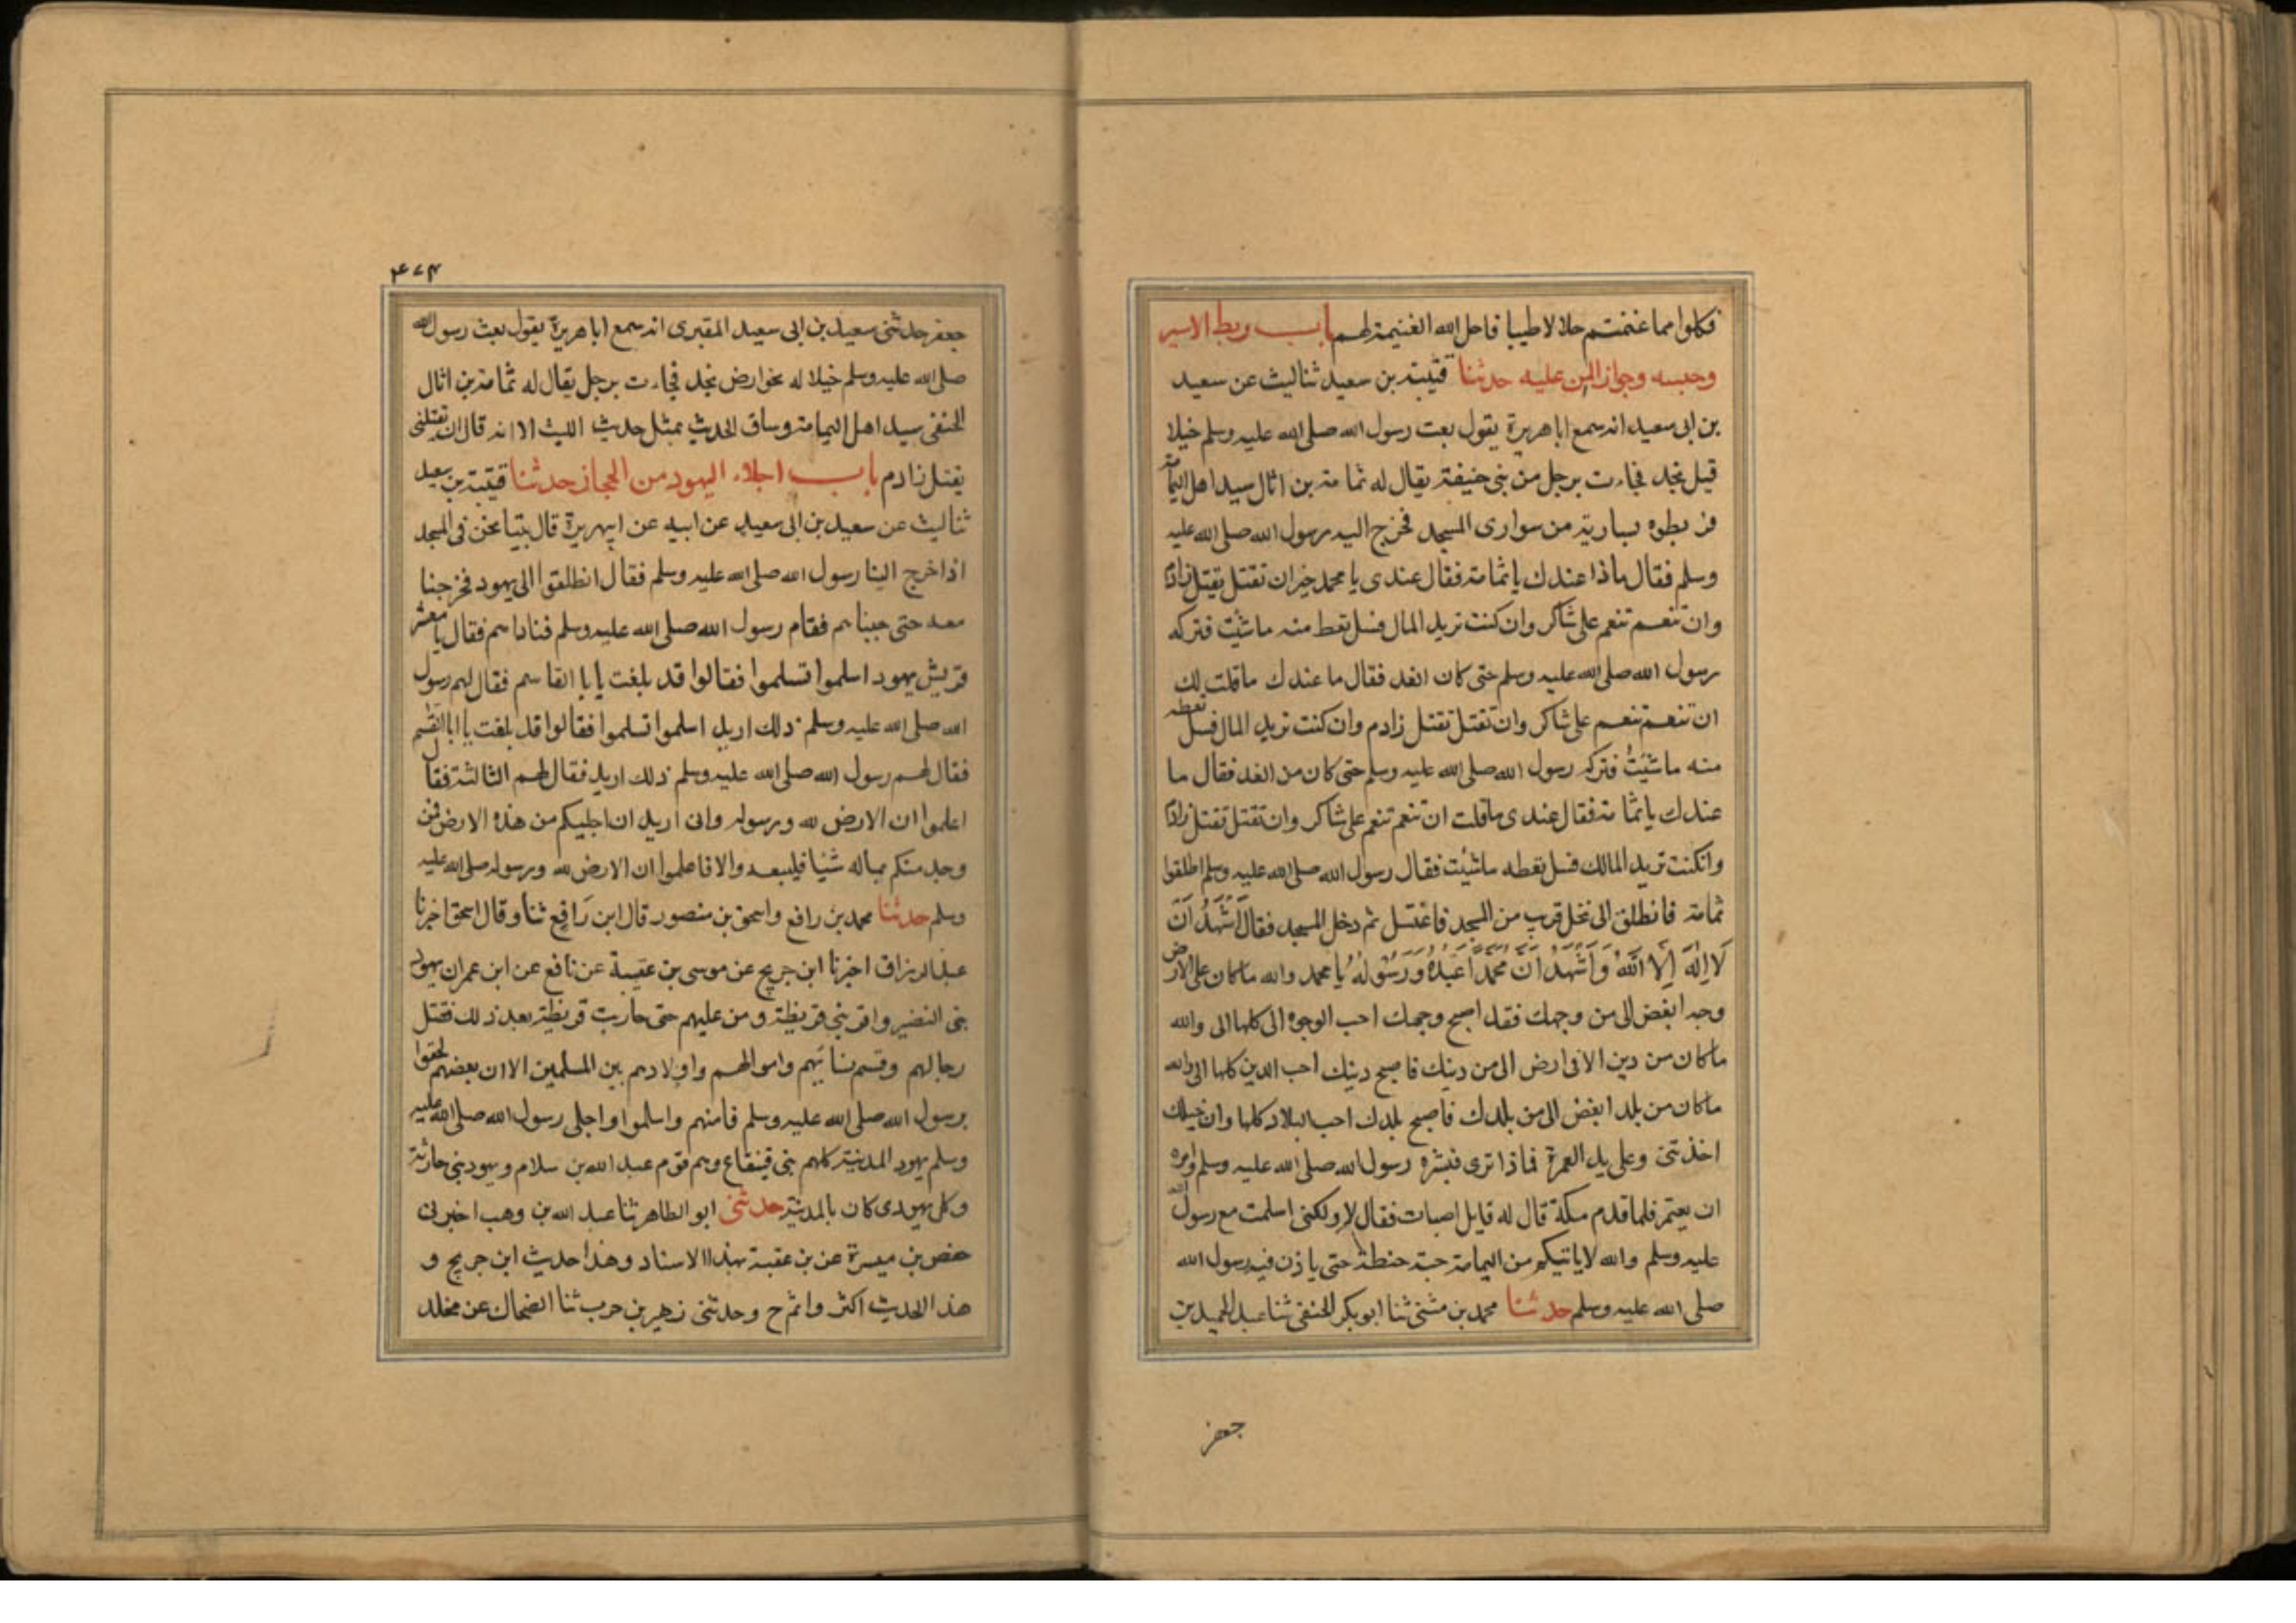 فكلوا مما غنمتم حلالا طيبا فاحل الله الغنيمة لهم باب ربط الاسير
وحبسه وجواز المن عليه حدثنا قتيبة بن سعيد ثنا ليث عن سعيد
بن ابى سعيد انه سمع ابا هريرة يقول بعث رسول الله صلى الله عليه وسلم خيلا
قبل نجد فجاءت برجل من بنى حنيفة يقال له ثمامة بن اثال سيد اهل اليمامة
فربطوه بسارية من سوارى المسجد فخرج اليه رسول الله صلى الله عليه
وسلم فقال ماذا عندك يا ثمامة فقال عندى يا محمد خير ان تقتل يقتل زادم
وان تنعم تنعم على شاكر وان كنت تريد المال فسل تعط منه ما شئت فتركه
رسول الله صلى الله عليه وسلم حتى كان الغد فقال ما عندك ما قلت لك
ان تنعم تنعم على شاكر وان تقتل تقتل زادم وان كنت تريد المال فسل تعطه
منه ما شئت فتركه رسول الله صلى الله عليه وسلم حتى كان من الغد فقال ما
عندك يا ثمامة فقال عندى ما قلت ان تنعم تنعم على شاكر وان تقتل تقتل زادم
وانكنت تريد المالك فسل تعطه ما شئت فقال رسول الله صلى الله عليه وسلم اطلقوا
ثمامة فانطلق الى نخل قرب من المسجد فاغتسل ثم دخل المسجد فقال اَشْهَدُ اَنْ
لَا اِلٰهَ اِلَّا اللهُ وَاَشْهَدُ اَنَّ مُحَمَّدًا عَبْدُهُ وَرَسُوْلُهُ يا محمد والله ما كان على الارض
وجه ابغض الى من وجهك فقد اصبح وجهك احب الوجوه الى كلها الى والله
ما كان من دين الافى ارض الى من دينك فاصبح دينك احب الدين كلها الى والله
ما كان من بلد ابغض الى من بلدك فاصبح بلدك احب البلاد كلها وان خيلك
اخذتنى وعلى يد العمرة فماذا ترى فبشره رسول الله صلى الله عليه وسلم وامره
ان يعتمر فلما قدم مكة قال له قايل اصبات فقال لا ولكنى اسلمت مع رسول الله
عليه وسلم والله لا ياتيكم من اليمامة حبة حنطة حتى ياذن فيه رسول الله
صلى الله عليه وسلم حدثنا محمد بن مثنى ثنا ابو بكر الحنفى ثنا عبد الحميد بن
جعفر
۴۷۴
جعفر حدثنى سعيد بن ابى سعيد المقبرى انه سمع ابا هريرة يقول بعث رسول الله
صلى الله عليه وسلم خيلا له نحو ارض نجد فجاءت برجل يقال له ثمامة بن اثال
الحنفى سيد اهل اليمامة وساق الحديث بمثل حديث الليث الا انه قال ان تقتلنى
يقتل زادم باب اجلاء اليهود من الحجاز حدثنا قتيبة بن سعيد
ثنا ليث عن سعيد بن ابى سعيد عن ابيه عن ابيهريرة قال بينا نحن فى المسجد
اذا خرج الينا رسول الله صلى الله عليه وسلم فقال انطلقوا الى يهود فخرجنا
معه حتى جينا هم فقام رسول الله صلى الله عليه وسلم فناداهم فقال يا معشر
قريش يهود اسلموا تسلموا فقالوا قد بلغت يا با القاسم فقال لهم رسول
الله صلى الله عليه وسلم ذلك اريد اسلموا تسلموا فقالوا قد بلغت يا ابا القسم
فقال لهم رسول الله صلى الله عليه وسلم ذلك اريد فقال لهم الثالثة فقال
اعلموا ان الارض لله ورسوله وانى اريد ان اجليكم من هذه الارض فمن
وجد منكم بماله شيئا فليبعه والا فاعلموا ان الارض لله ورسوله صلى الله عليه
وسلم حدثنا محمد بن رافع واسحق بن منصور قال ابن رَافِع ثنا وقال اسحق اخبرنا
عبد الرزاق اخبرنا ابن جريج عن موسى بن عقبة عن نافع عن ابن عمر ان يهود
بنى النضير واقر بنى قريظة ومن عليهم حتى حاربت قريظة بعد ذلك فقتل
رجالهم وقسم نسائهم واموالهم واولادهم بين المسلمين الا ان بعضهم لحقوا
برسول الله صلى الله عليه وسلم فامنهم واسلموا واجلى رسول الله صلى الله عليه
وسلم يهود المدينة كلهم بنى قينقاع وهم قوم عبد الله بن سلام ويهود بنى حارثة
وكل يهودى كان بالمدينة حدثنى ابو الطاهر ثنا عبد الله بن وهب اخبرنى
حفص بن ميسرة عن بن عقبة بهذا الاسناد وهذا حديث ابن جريج و
هذا الحديث اكثر واتم ح وحدثنى زهير بن حرب ثنا الضحاك عن مخلد